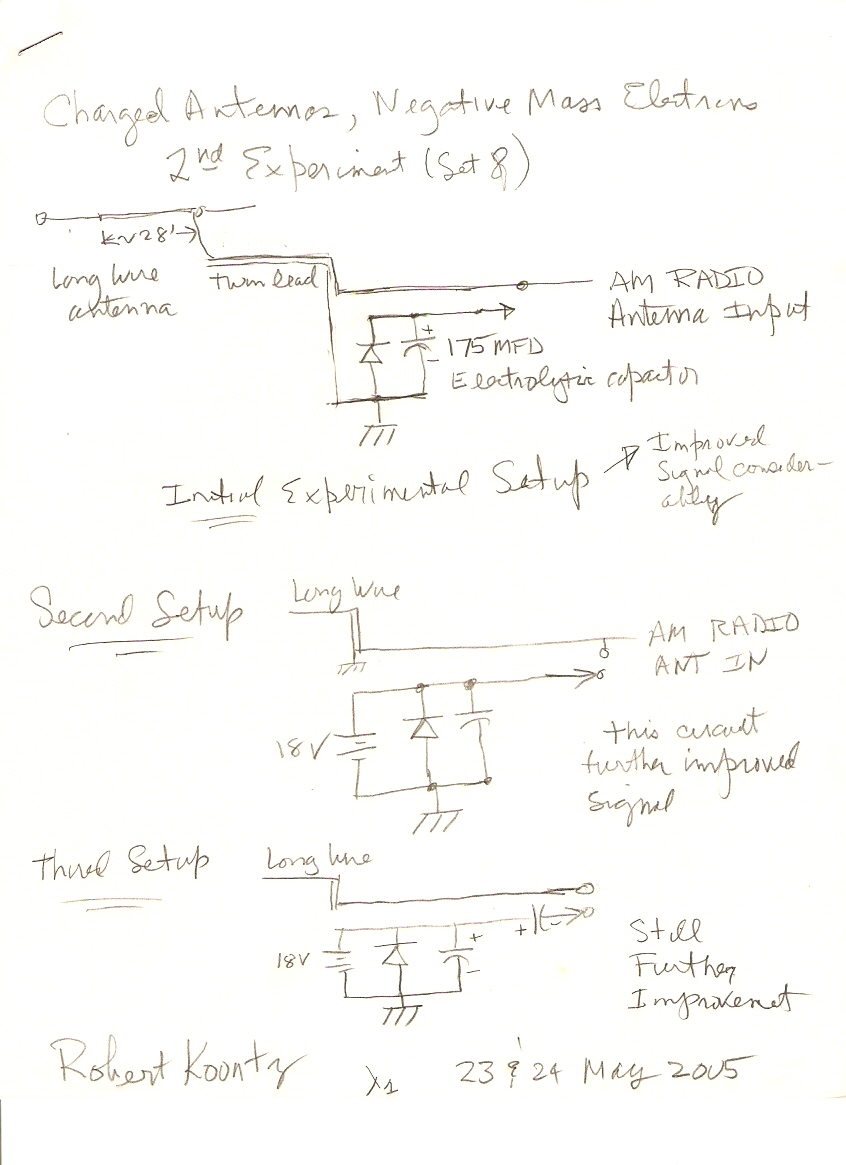 Charged Antennas, Negative Mass Electrons
2nd Experiment (Set 8)
28'
Long Wire
antenna
twin lead
AM RADIO
Antenna Input
+
175 MFD
-
Electrolytic capactor
Initial Experimental Setup
Improved
Signal consider-
ably
Second Setup
Long Wire
AM RADIO
ANT IN
18V
this circuit
further improved
Signal
Third Setup
Long Wire
+
-
18V
+
-
Still
Further
Improvement
Robert Koontz
23 & 24 May 2005